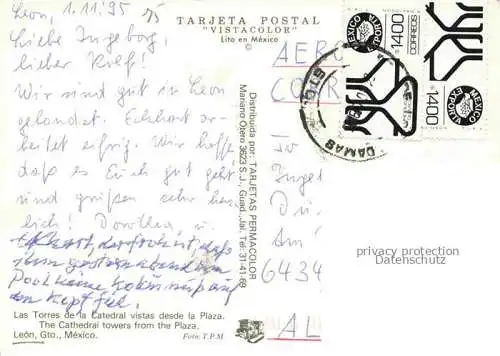 Leon, 1.11.95
Liebe Ingeborg,
lieber Rolf!
Wir sind gut in Leon
gelandet. Eckhart ar-
beitet eifrig. Wir hoffen
daß es Euch gut geht
und grüßen sehr herz-
lich! Dorothea u.
Eckhart, der froh ist, daß
ihm gestern abend am
Pool keine Kokosnuß auf
den Kopf fiel.
Las Torres de la Catedral vistas desde la Plaza.
The Cathedral towers from the Plaza.
León, Gto., México.
Foto: T.P.M.
TARJETA POSTAL
"VISTACOLOR"
Lito en México
©
Distribuida por: TARJETAS PERMACOLOR
Mariano Otero 3623 S.J., Guad., Jal. Tel: 31-41-69
AERO
CORR
Inge
6434
AL
MEXICO
EXPORTA
1400
CORREOS
MEXICO
EXPORTA
1400
DAMAS
GTO.
privacy protection
Datenschutz